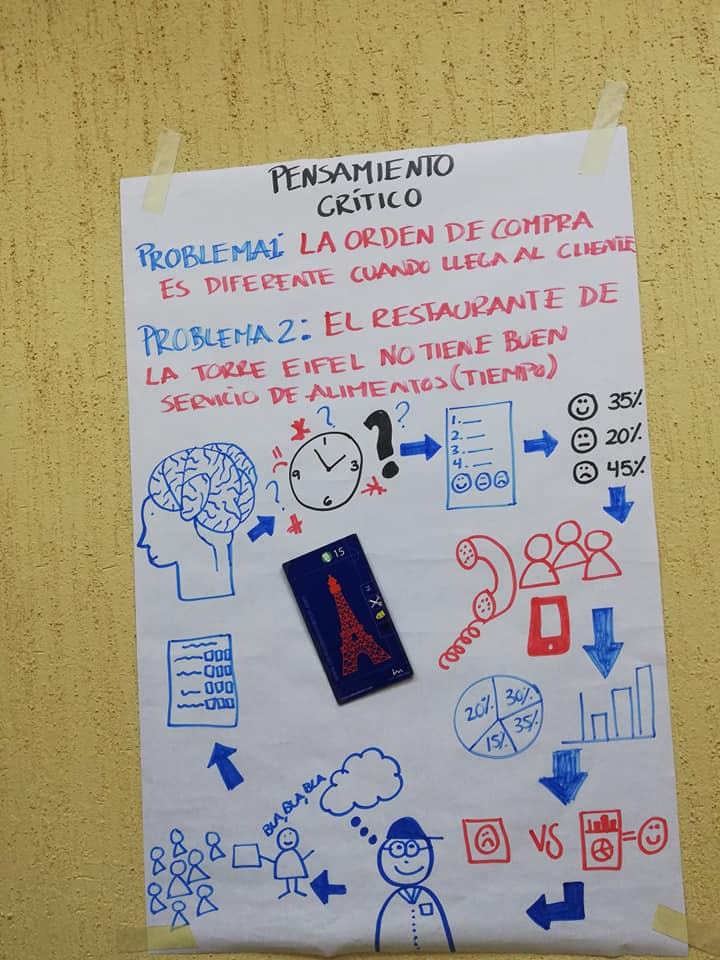 PENSAMIENTO
CRÍTICO
PROBLEMA1: LA ORDEN DE COMPRA
ES DIFERENTE CUANDO LLEGA AL CLIENTE
PROBLEMA 2: EL RESTAURANTE DE
LA TORRE EIFEL NO TIENE BUEN
SERVICIO DE ALIMENTOS (TIEMPO)
? ? ?
1
9 3
6
?
1.
2.
3.
4.
35%
20%
45%
15
20% 30%
15% 35%
BLA, BLA, BLA
VS =